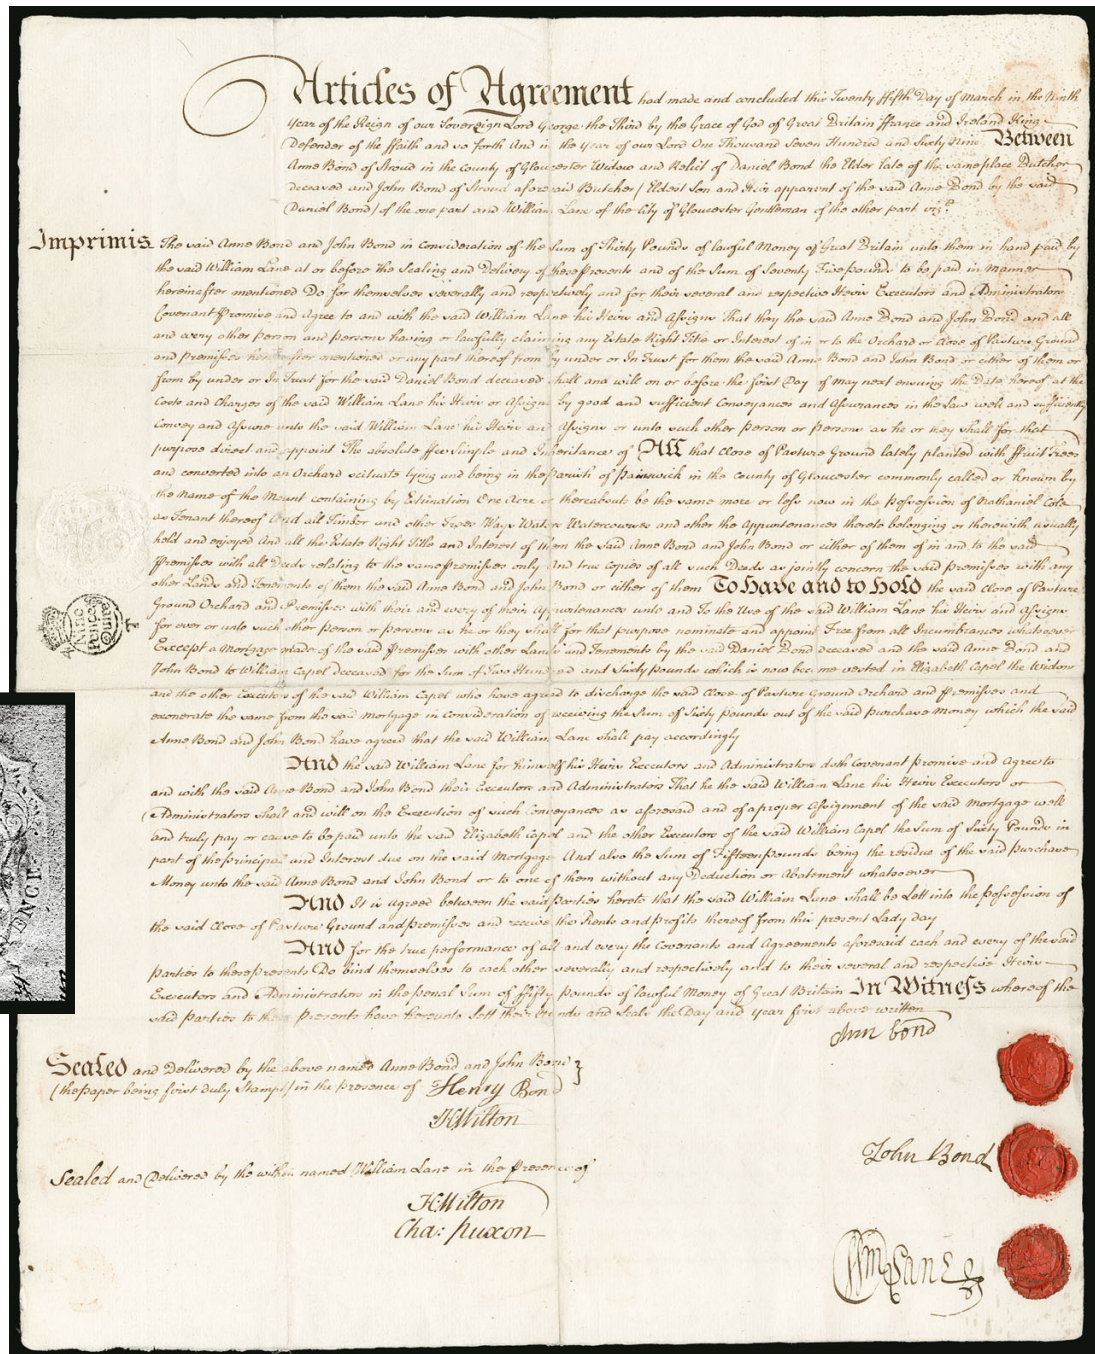 Articles of Agreement had made and concluded this Twenty ffifth Day of March in the Ninth
Year of the Reign of our Sovereign Lord George the Third by the Grace of God of Great Britain ffrance and Ireland King
Defender of the ffaith and so forth And in the year of our Lord One Thousand Seven Hundred and Sixty Nine Between
Anne Bond of Stroud in the County of Gloucester Widow and Relict of Daniel Bond the Elder late of the same place Butcher
deceased and John Bond of Stroud aforesaid Butcher (Eldest Son and Heir apparent of the said Anne Bond by the said
Daniel Bond) of the one part and William Lane of the City of Gloucester Gentleman of the other part vizt.
Imprimis The said Anne Bond and John Bond in consideration of the Sum of Thirty Pounds of lawful Money of Great Britain unto them in hand paid by
the said William Lane at or before the Sealing and Delivery of these presents and of the Sum of Seventy Five pounds to be paid in manner
hereinafter mentioned Do for themselves severally and respectively and for their several and respective Heirs Executors and Administrators
Covenant Promise and Agree to and with the said William Lane his Heirs and Assigns That they the said Anne Bond and John Bond and all
and every other person and persons having or lawfully claiming any Estate Right Title or Interest of in or to the Orchard or Close of Pasture Ground
and premisses hereinafter mentioned or any part thereof from by under or In Trust for them the said Anne Bond and John Bond or either of them or
from by under or In Trust for the said Daniel Bond deceased shall and will on or before the first Day of May next ensuing the Date hereof at the
Costs and Charges of the said William Lane his Heirs or Assigns by good and sufficient Conveyances and Assurances in the Law well and sufficiently
Convey and Assure unto the said William Lane his Heirs and Assigns or unto such other person or persons as he or they shall for that
purpose direct and appoint The absolute ffee Simple and Inheritance of All that Close of Pasture Ground lately planted with ffruit Trees
and converted into an Orchard scituate lying and being in the Parish of Painswick in the County of Gloucester commonly called or known by
the name of the Mount containing by Estimation One Acre or thereabouts be the same more or less now in the possession of Nathaniel Cole
as Tenant thereof And all Timber and other Trees Ways Waters Watercourses and other the Appurtenances thereto belonging or therewith usually
held and enjoyed And all the Estate Right Title and Interest of them the said Anne Bond and John Bond or either of them of in and to the said
Premisses with all Deeds relating to the same premisses only And true copies of all such Deeds as jointly concern the said premisses with any
other Lands and Tenements of them the said Anne Bond and John Bond or either of them To Have and to hold the said Close of Pasture
Ground Orchard and Premisses with their and every of their Appurtenances unto and To the Use of the said William Lane his Heirs and Assigns
for ever or unto such other person or persons as he or they shall for that purpose nominate and appoint Free from all Incumbrances whatsoever
Except a Mortgage made of the said Premisses with other Lands and Tenements by the said Daniel Bond deceased and the said Anne Bond and
John Bond to William Capel deceased for the Sum of Two Hundred and Sixty pounds which is now become vested in Elizabeth Capel the Widow
and the other Executors of the said William Capel who have agreed to discharge the said Close of Pasture Ground Orchard and Premisses and
exonerate the same from the said mortgage in consideration of receiving the Sum of Sixty pounds out of the said purchase Money which the said
Anne Bond and John Bond have agreed that the said William Lane shall pay accordingly
And the said William Lane for himself his Heirs Executors and Administrators doth Covenant Promise and Agree to
and with the said Anne Bond and John Bond their Executors and Administrators That he the said William Lane his Heirs Executors or
Administrators shall and will on the Execution of such Conveyances as aforesaid and of a proper Assignment of the said Mortgage well
and truly pay or cause to be paid unto the said Elizabeth Capel and the other Executors of the said William Capel the Sum of Sixty Pounds in
part of the principal and Interest due on the said Mortgage And also the Sum of Fifteen pounds being the residue of the said purchase
Money unto the said Anne Bond and John Bond or to one of them without any Deduction or Abatement whatsoever
And It is Agreed between the said parties hereto that the said William Lane shall be Lett into the possession of
the said Close of Pasture Ground and premisses and receive the Rents and profits thereof from this present Lady day
And for the true performance of all and every the Covenants and Agreements aforesaid each and every of the said
parties to these presents Do bind themselves to each other severally and respectively and to their several and respective Heirs
Executors and Administrators in the penal Sum of ffifty pounds of lawful Money of Great Britain In Witness whereof the
said parties to these presents have hereunto sett their Hands and Seals the Day and year first above written
Ann bond
Sealed and Delivered by the above named Anne Bond and John Bond
(the paper being first duly Stampt) in the presence of Henry Bond
H Wilton
John Bond
Sealed and Delivered by the within named William Lane in the Presence of
H Wilton
Cha: Nuxon
Wm Lane
Nine
Pence
Quire
ENCE